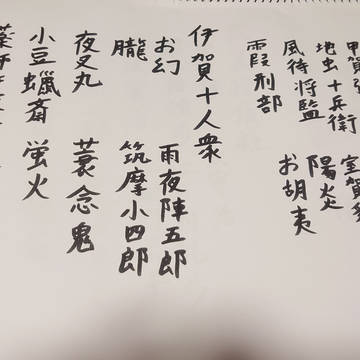 甲賀 室賀
地虫十兵衛 陽炎
風待将監 お胡夷
霞刑部
伊賀十人衆
お幻 雨夜陣五郎
朧 筑摩小四郎
夜叉丸 蓑念鬼
小豆蠟斎 螢火